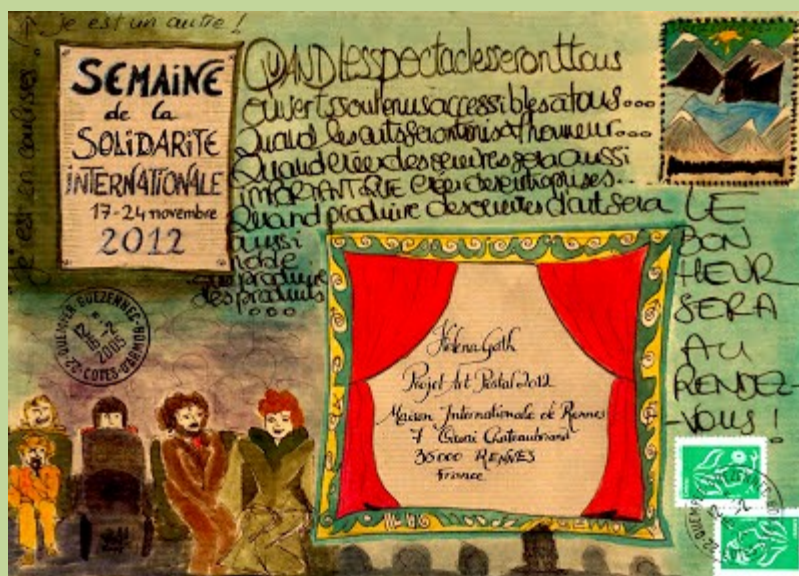 Je est un autre !
je est en coulisses.
SEMAINE
de la
SOLIDARITE
INTERNATIONALE
17-24 novembre
2012
QUAND les spectacles seront tous
ouverts soutenus accessibles à tous...
Quand les arts seront mis à l'honneur...
Quand créer des oeuvres sera aussi
IMPORTANT QUE créer des entreprises...
Quand produire des oeuvres d'art sera
aussi
noble
que produire
des produits
...
LE
BON
HEUR
SERA
AU
RENDEZ-
-VOUS !
QUEMPER-GUEZENNEC
2005
22-COTES-D'ARMOR
Helena Goth
Projet Art Postal 2012
Maison Internationale de Rennes
7 Quai Chateaubriand
35000 RENNES
France